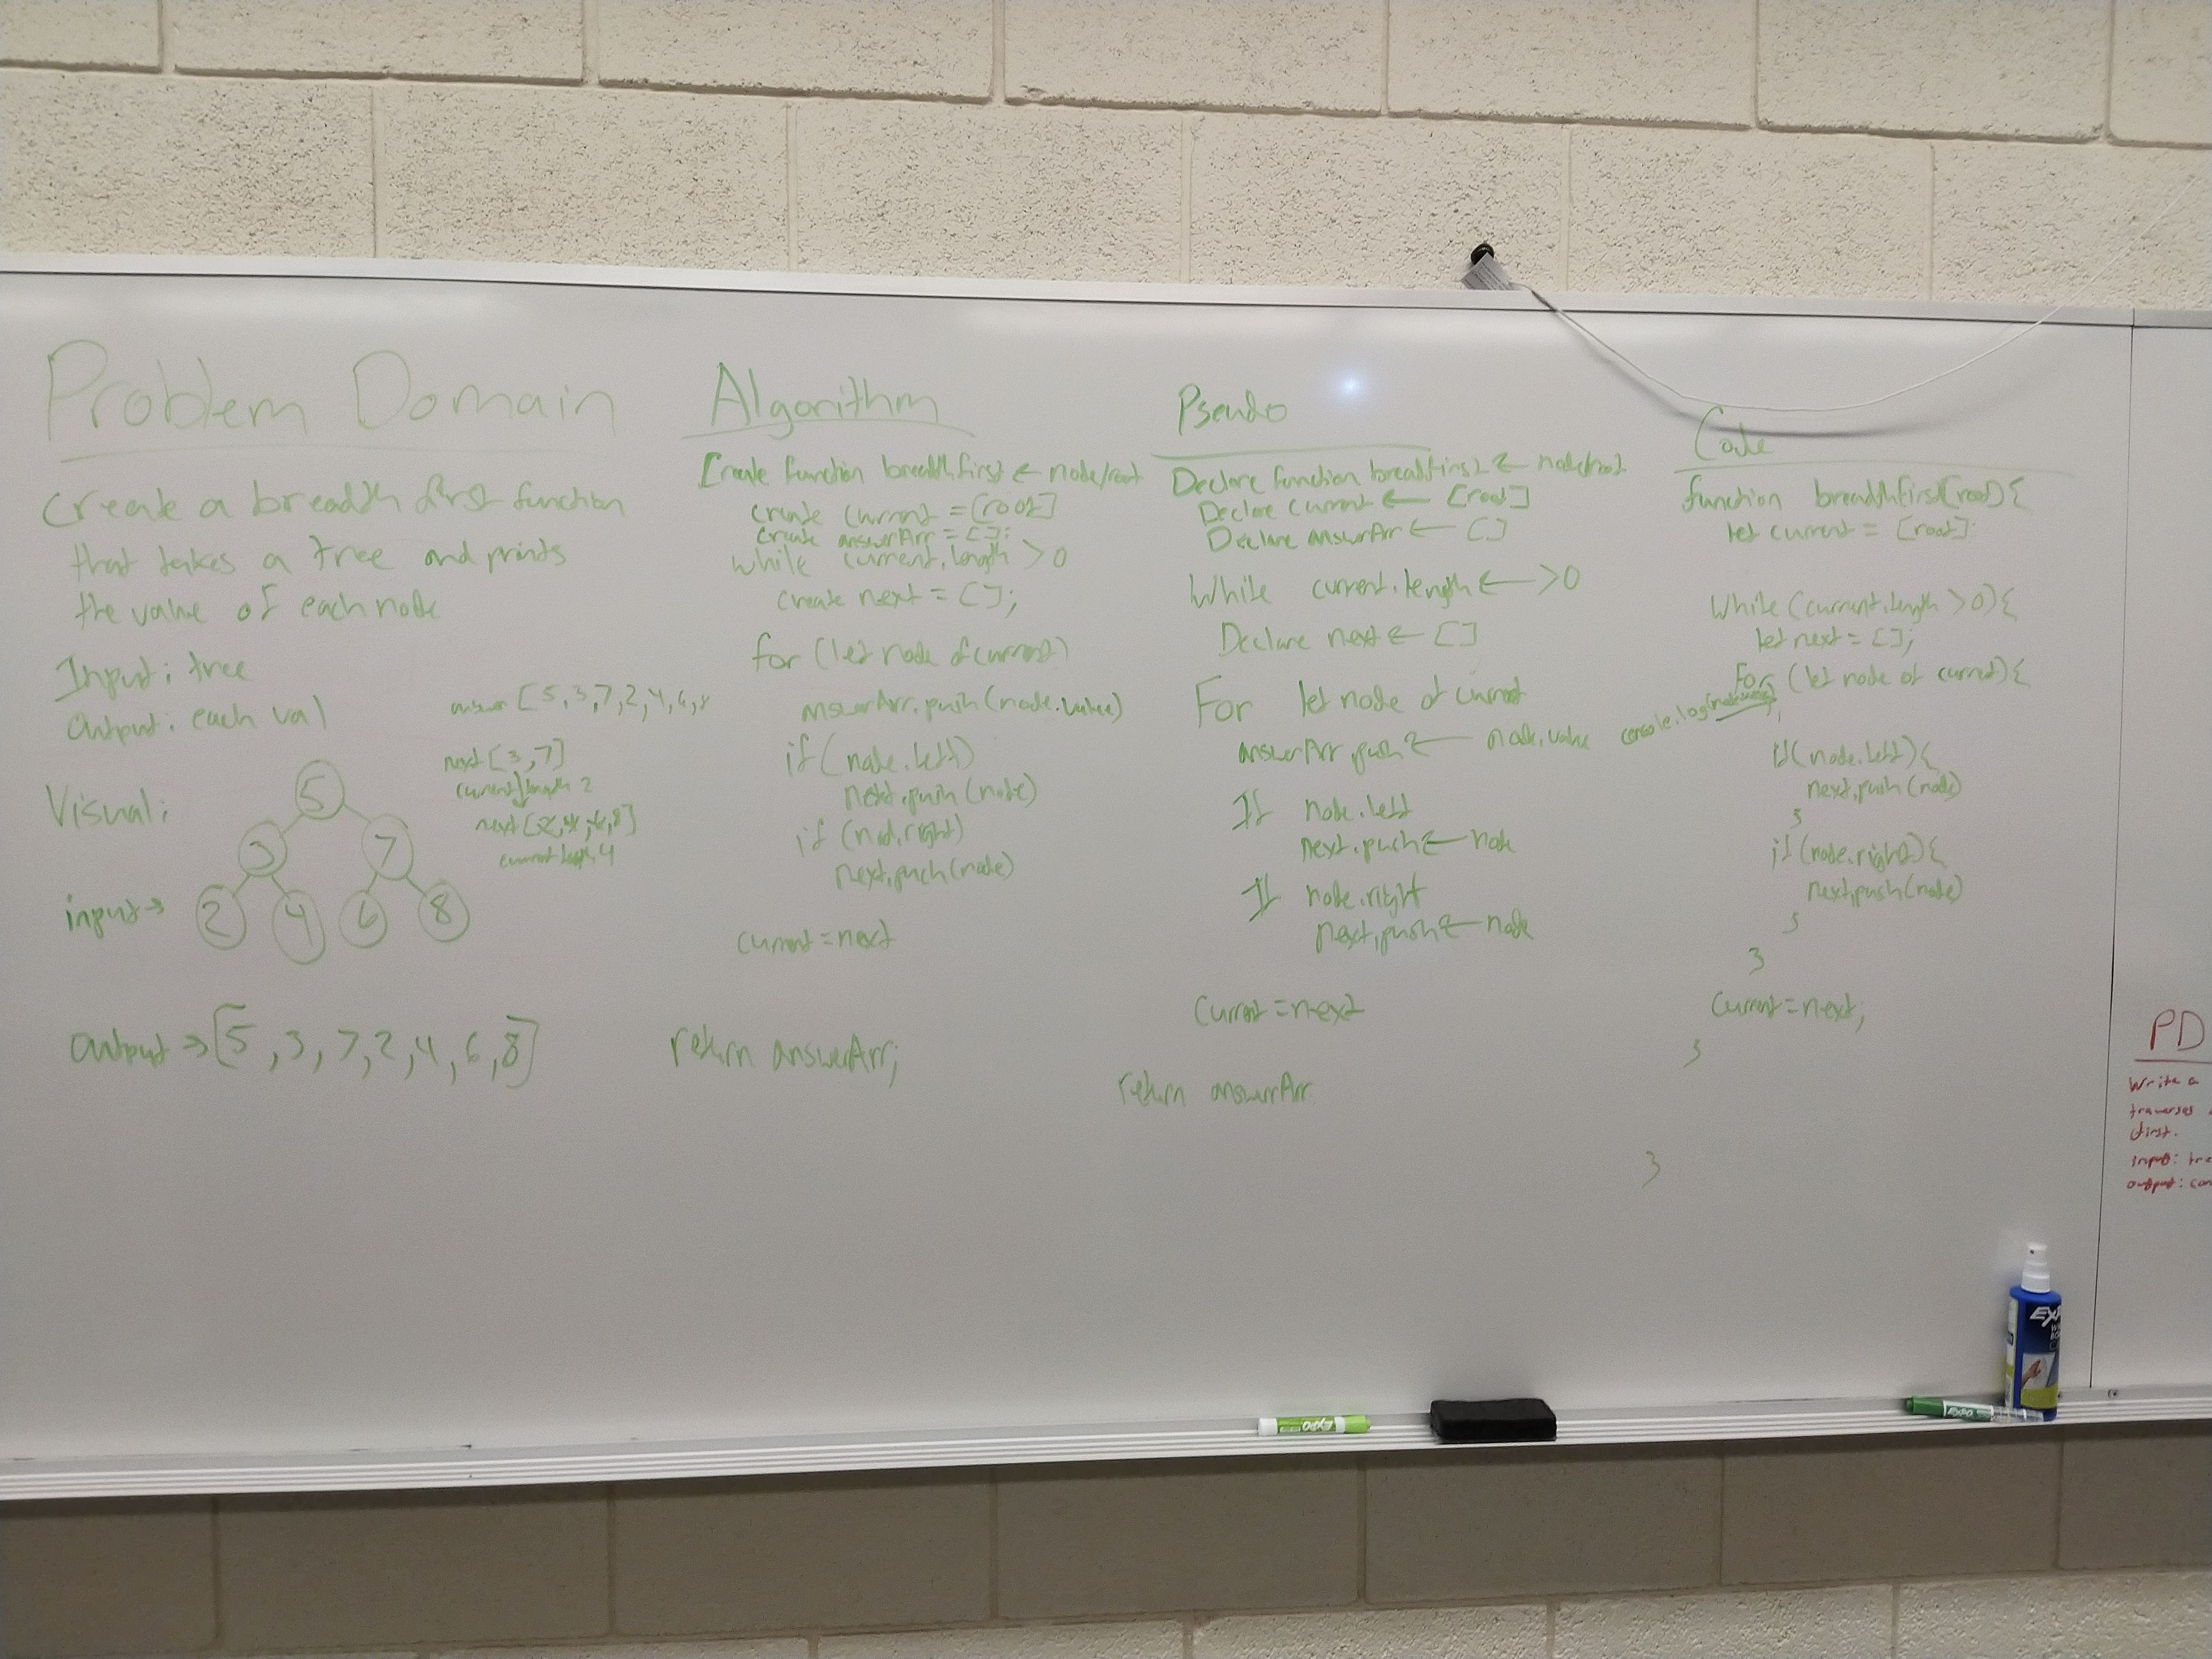 Problem Domain
Create a breadth first function
that takes a tree and prints
the value of each node
Input: tree
Output: each val
answer [5,3,7,2,4,6,8
Visual:
next [3,7]
current length 2
next [2,4,6,8]
current length 4
5
3 7
input →
2 4 6 8
output → [5,3,7,2,4,6,8]
Algorithm
Create function breadthfirst ← node/root
create current = [root]
create answerArr = [];
while current.length >0
create next = [];
for (let node of current)
answerArr.push(node.value)
if(node.left)
next.push(node)
if (node.right)
next.push(node)
current = next
return answerArr;
Pseudo
Declare function breadthfirst ← node/root
Declare current ← [root]
Declare answerArr ← []
While current.length ← >0
Declare next ← []
For let node of current
answerArr.push ← node.value
If node.left
next.push ← node
If node.right
next.push ← node
Current = next
return answerArr
Code
function breadthfirst(root){
let current = [root];
While (current.length >0){
let next = [];
For (let node of current){
console.log(node.value);
if(node.left){
next.push(node)
}
if(node.right){
next.push(node)
}
}
Current = next;
}
}
PD
Write a
traverses
first.
input: tre
output: con
EXPO
EXPO
EXP